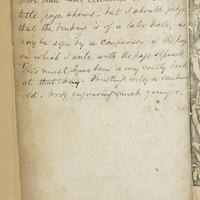 title page shows - but I should judge
that the binding is of a later date, as
may be seen by a comparison of the page
on which I write with the page opposite
This must have been a very costly book
at that day - Printing only a century
old - wood engraving much younger.